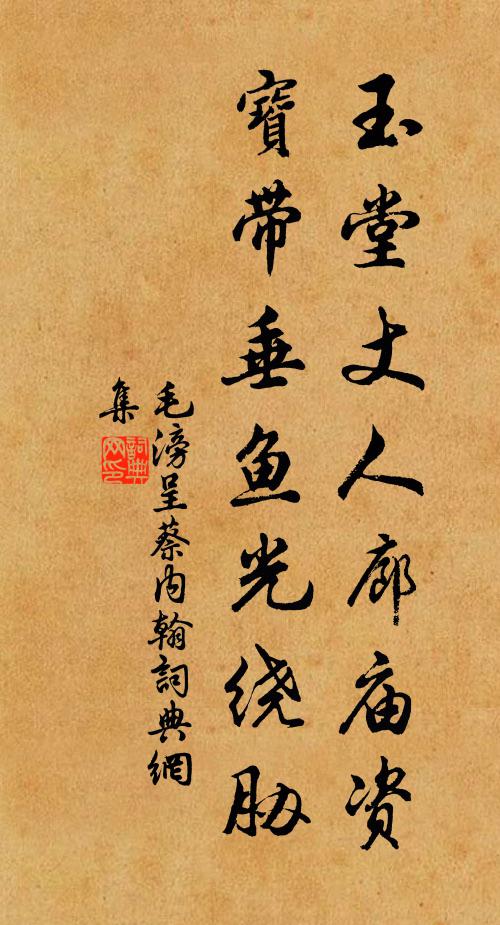 玉堂丈人廊庙资
寶带垂鱼光绕胁
毛滂呈蔡内翰詞典網
集
詞典网印